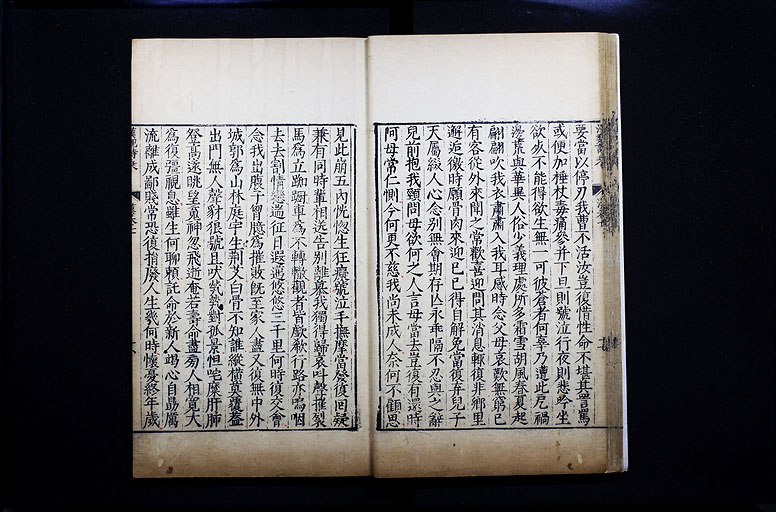 要當以停刃我曹不活汝豈復惜性命不堪其詈罵
或便加棰杖毒痛參并下旦則號泣行夜則悲吟坐
欲死不能得欲生無一可彼蒼者何辜乃遭此戹禍
邊荒與華異人俗少義理處所多霜雪胡風春夏起
翩翩吹我衣肅肅入我耳感時念父母哀歎無窮已
有客從外來聞之常歡喜迎問其消息輒復非鄉里
邂逅徼時願骨肉來迎已已得自解免當復弃兒子
天屬綴人心念別無會期存亾永乖隔不忍與之辭
兒前抱我頸問母欲何之人言母當去豈復有還時
阿母常仁惻今何更不慈我尚未成人柰何不顧思
見此崩五內恍惚生狂癡號泣手撫摩當發復回疑
兼有同時輩相送告別離慕我獨得歸哀叫聲摧裂
馬爲立踟躕車爲不轉轍觀者皆歔欷行路亦嗚咽
去去割情戀遄征日遐邁悠悠三千里何時復交會
念我出腹子胷臆爲摧敗旣至家人盡又復無中外
城郭爲山林庭宇生荊艾白骨不知誰縱橫莫覆蓋
出門無人聲豺狼號且吠煢煢對孤景怛咤糜肝肺
登高遠眺望䰟神忽飛逝奄若壽命盡旁人相寬大
爲復彊視息雖生何聊賴託命於新人竭心自勗厲
流離成鄙賤常恐復捐廢人生幾何時懷憂終年歲